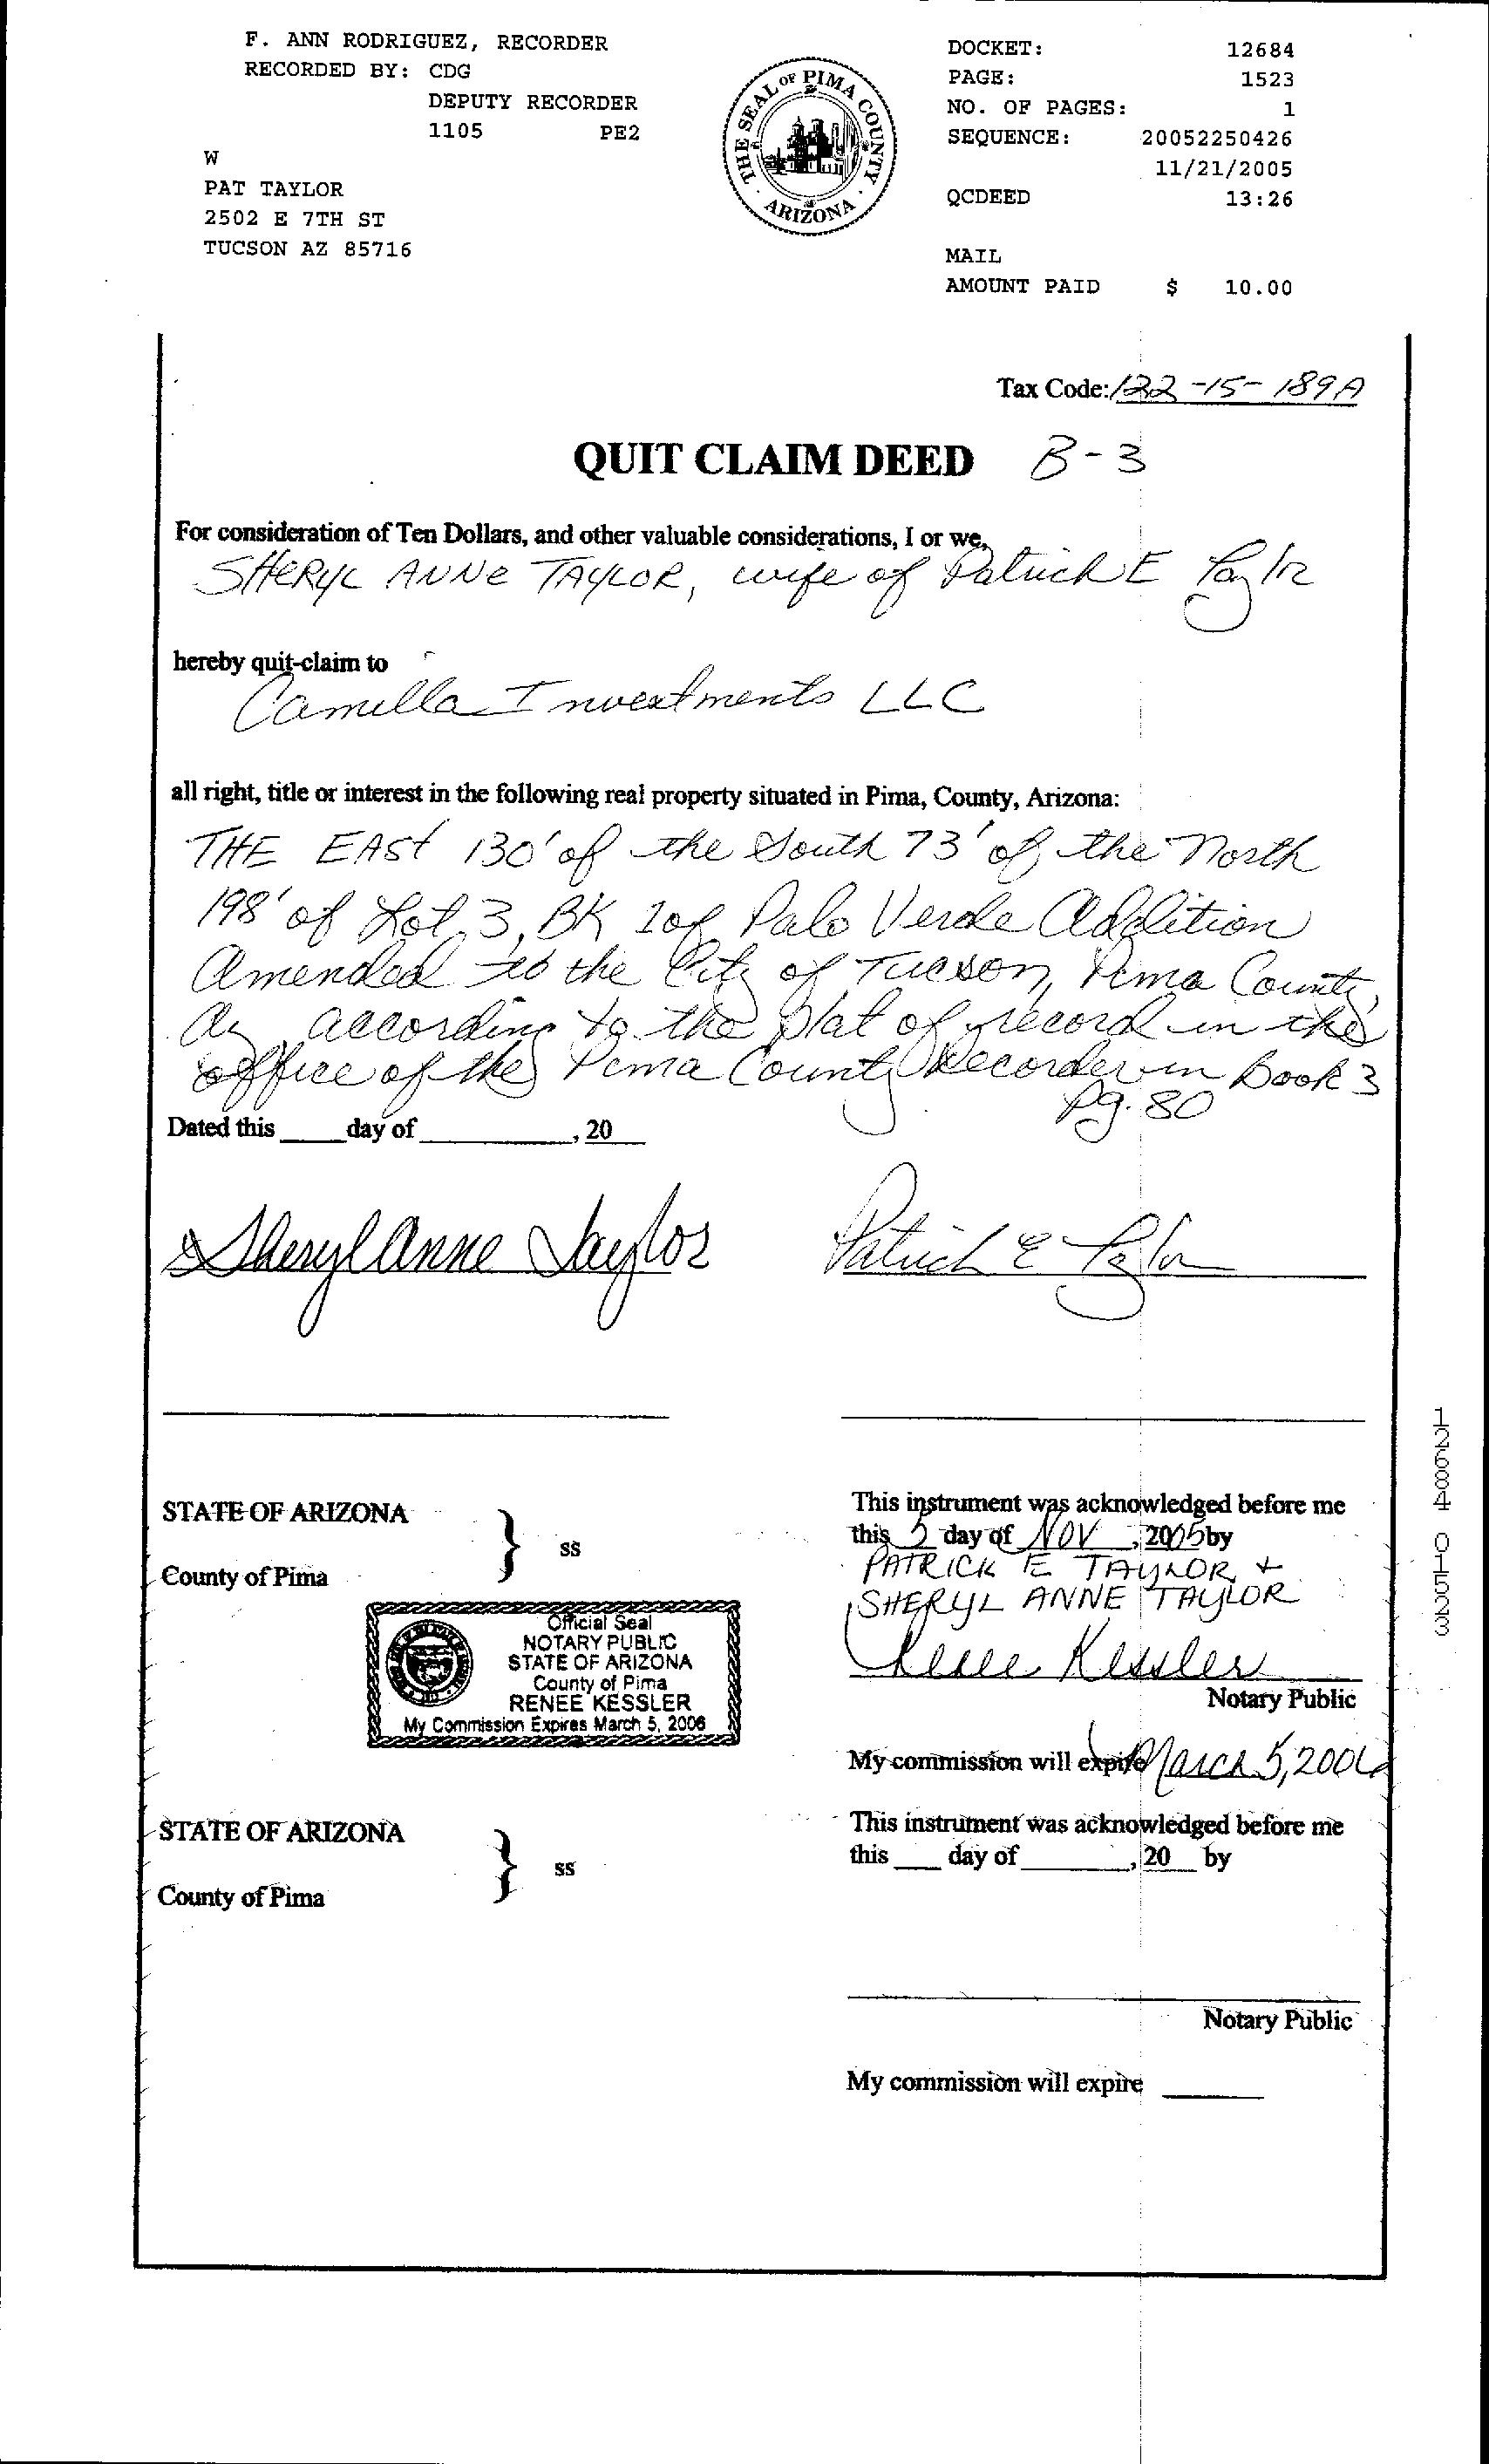 F. ANN RODRIGUEZ, RECORDER
RECORDED BY: CDG
DEPUTY RECORDER
1105 PE2
W
PAT TAYLOR
2502 E 7TH ST
TUCSON AZ 85716
THE SEAL OF PIMA COUNTY
ARIZONA
DOCKET: 12684
PAGE: 1523
NO. OF PAGES: 1
SEQUENCE: 20052250426
11/21/2005
QCDEED 13:26
MAIL
AMOUNT PAID $ 10.00
Tax Code: 122-15-189A
QUIT CLAIM DEED B-3
For consideration of Ten Dollars, and other valuable considerations, I or we,
SHERYL ANNE TAYLOR, wife of Patrick E Taylor
hereby quit-claim to
Camilla Investments LLC
all right, title or interest in the following real property situated in Pima, County, Arizona:
THE EAST 130' of the South 73' of the North
198' of Lot 3, BK 1 of Palo Verde Addition
Amended to the City of Tucson, Pima County,
Az according to the plat of record in the
office of the Pima County Recorder in Book 3
Pg. 80
Dated this ____ day of ________, 20
Sheryl Anne Taylor Patrick E Taylor
STATE OF ARIZONA
ss
County of Pima
Official Seal
NOTARY PUBLIC
STATE OF ARIZONA
County of Pima
RENEE KESSLER
My Commission Expires March 5, 2006
This instrument was acknowledged before me
this 2 day of NOV, 2005 by
PATRICK E TAYLOR +
SHERYL ANNE TAYLOR
Renee Kessler
Notary Public
My commission will expire March 5, 2006
12684 01523
STATE OF ARIZONA
ss
County of Pima
This instrument was acknowledged before me
this ___ day of ______, 20 __ by
Notary Public
My commission will expire ______